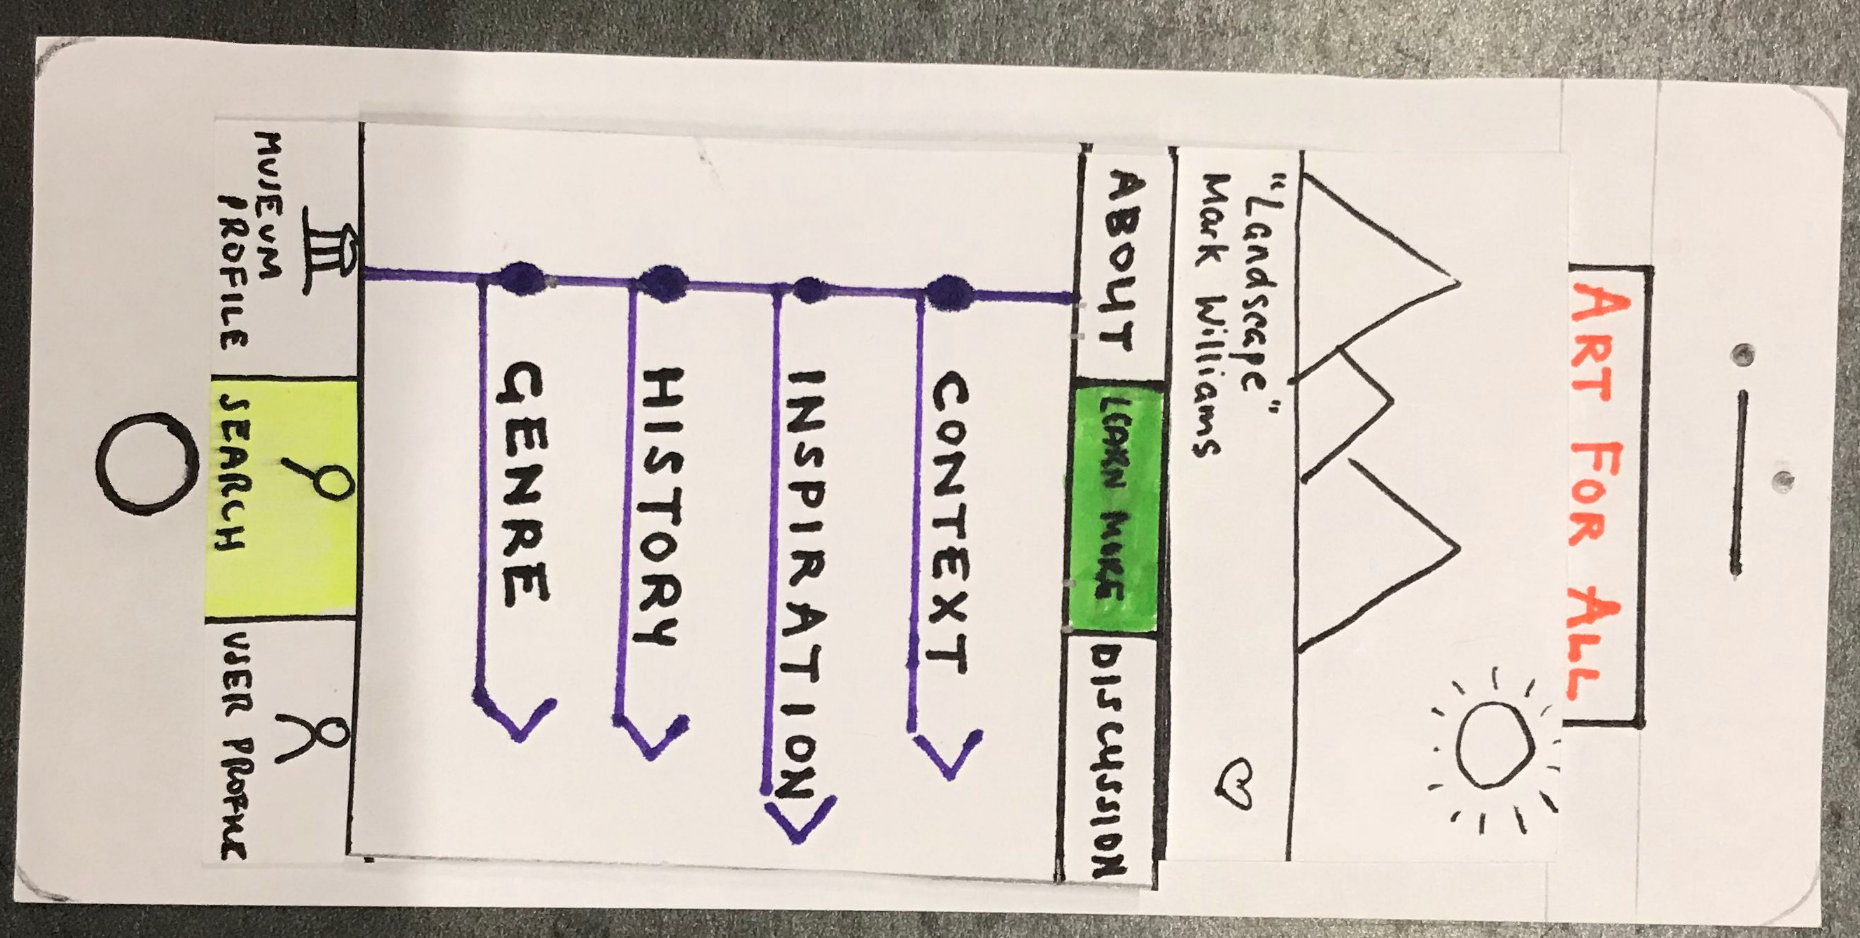 ART FOR ALL
"Landscape"
Mark Williams
ABOUT LEARN MORE DISCUSSION
CONTEXT
INSPIRATION
HISTORY
GENRE
MUSEUM PROFILE
SEARCH
USER PROFILE